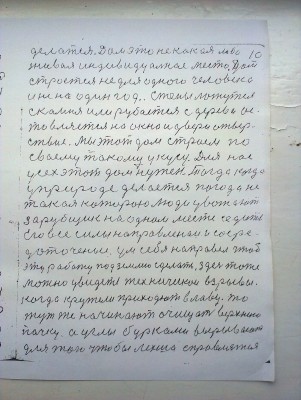 10
делается. Дом это не какая либо
живая индивидуалное место. Дом
строется не для одного человека
и не на один год. Стены ложутся
с камня или рубается с дерева ос-
товляется на окно и двери отвер-
ствие. Мы этот дом строем по
своему такому укусу. Для нас
усех этот дом нужен. Тогда когда
у природе делается погода не
такая которою люди увожают
зарубщик на одном месте сидеть
его все силы направленаи и сосре-
доточены. у себя направел чтоб
эту работу под землею сделать, здесь тоже
можно увидеть техническою взрывы.
когда крутели приходят в лаву. то
тут же начинают очищать верхнюю
пачку. а углы бурками вырывают
для того чтобы легше справлятся